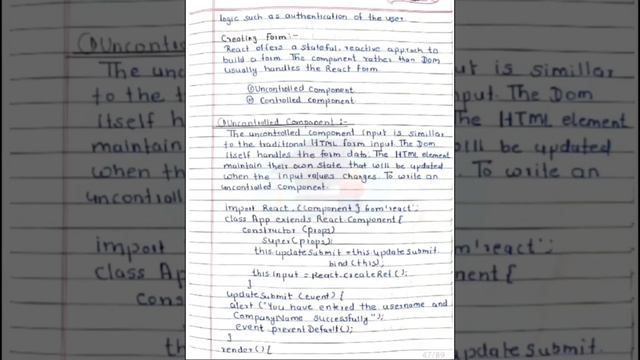 logic such as authentication of the user.
Creating Form:-
React offers a stateful, reactive approch to
build a form. The component rather than Dom
usually handles the React form.
① Uncontrolled Component
② Controlled component
① Uncontrolled Component :-
The uncontrolled component input is simillar
to the traditional HTML form input. The Dom
itself handles the form data. The HTML element
maintain their own state that will be updated
when the input values changes. To write an
uncontrolled component.
import React, {Component} from 'react';
class App extends React.Component {
constructor (props)
super(props);
this.updateSubmit = this.updateSubmit.
bind(this);
this.input = React.createRef();
}
updateSubmit (event) {
alert ("You have entered the username and
CompanyName successfully");
event.preventDefault();
}
render() {
47/89